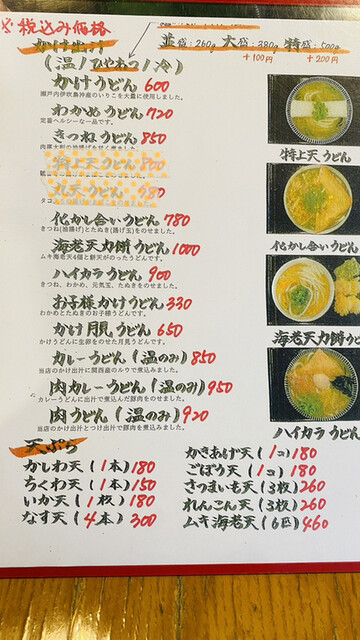 税込み価格
かけ出汁
並盛:260g 大盛:380g 特盛:500g
+100円 +200円
(温/ひやあつ/冷)
かけうどん 600
瀬戸内伊吹島沖産のいりこを大量に使用しました。
わかめうどん 720
定番ヘルシーな一品です。
きつねうどん 850
特上天うどん
丸天うどん 980
化かし合いうどん 780
きつね(油揚げ)とたぬき(揚げ玉)をのせました。
海老天力餅うどん 1000
ムキ海老天4個と餅天がのったうどんです。
ハイカラうどん 900
きつね、わかめ、元気玉、たぬきをのせました。
お子様かけうどん 330
わかめとたぬきのお子様うどんです。
かけ月見うどん 650
かけうどんに生卵をのせた月見うどんです。
カレーうどん (温のみ) 850
当店のかけ出汁に関西産のルウで煮込みました。
肉カレーうどん (温のみ) 950
カレーうどんに出汁で煮込んだ豚肉をのせました。
肉うどん (温のみ) 920
当店のかけ出汁とつけ出汁で豚肉を煮込みました。
特上天うどん
化かし合いうどん
海老天力餅うどん
ハイカラうどん
天ぷら
かしわ天 (1本) 180
ちくわ天 (1本) 150
いか天 (1枚) 180
なす天 (4本) 300
かきあげ天 (1コ) 180
ごぼう天 (1コ) 180
さつまいも天 (3枚) 260
れんこん天 (3枚) 260
ムキ海老天 (6匹) 460